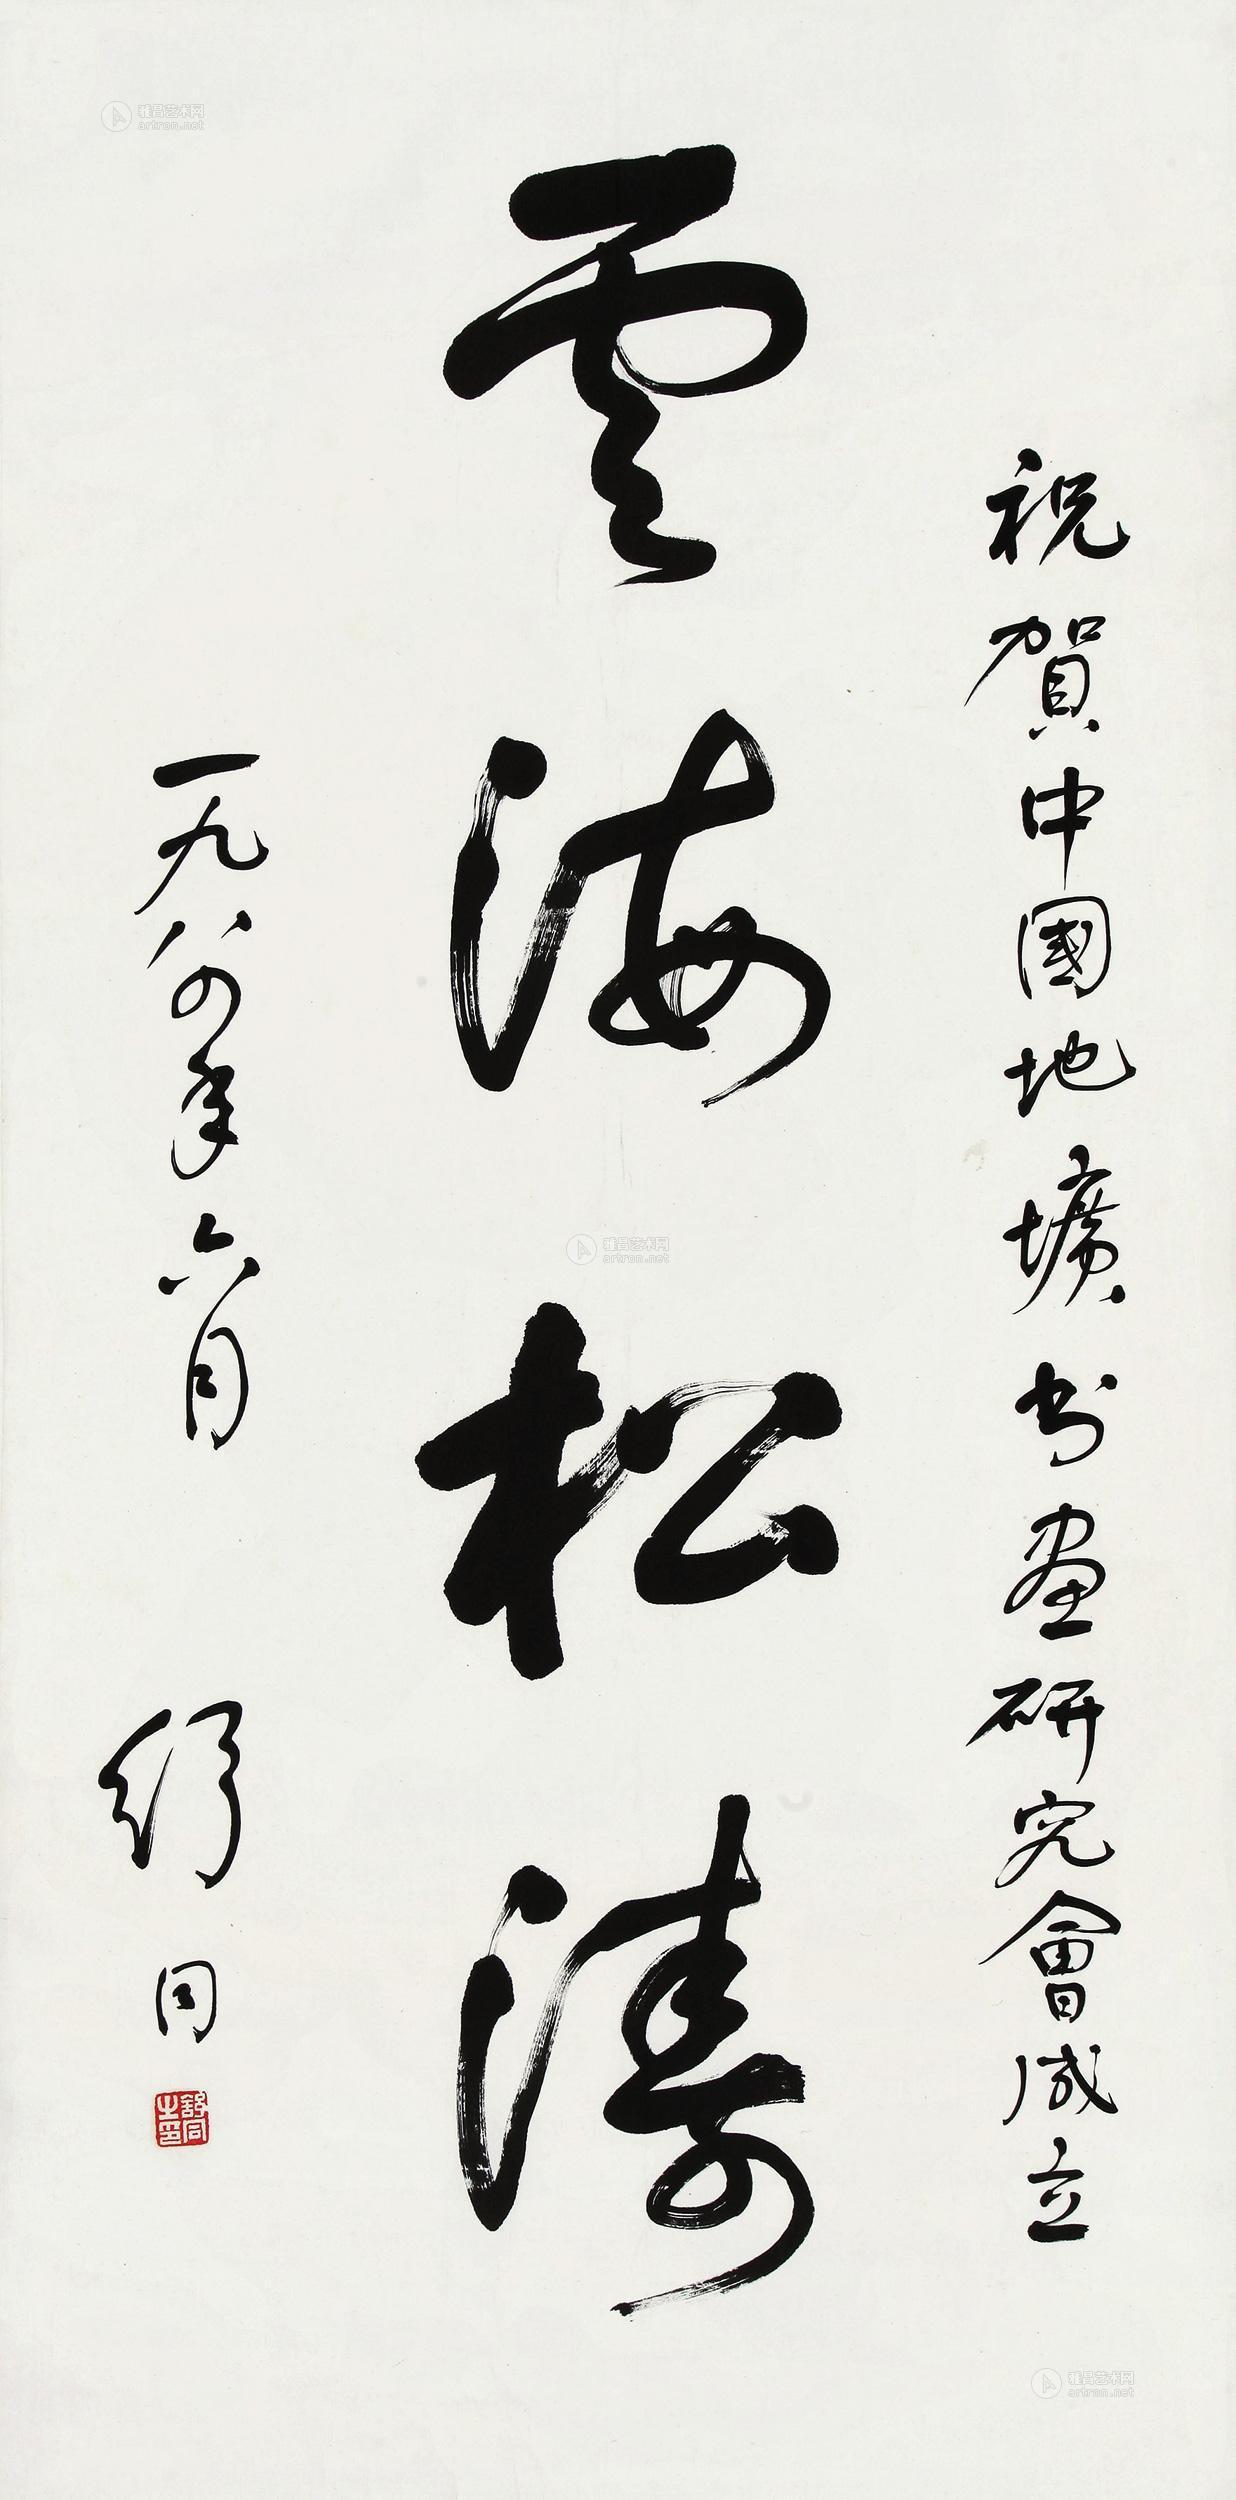 雅昌艺术网
artron.net
祝賀中國地壙书畫研究會成立
雲海松濤
一九八四年六月
舒同
舒同之印
雅昌艺术网
artron.net
雅昌艺术网
artron.net